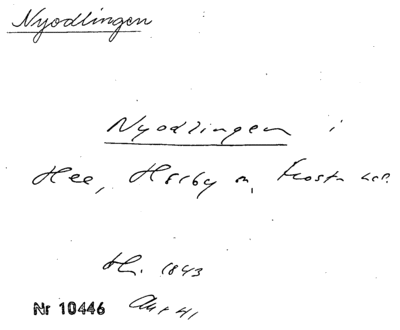 Nyodlingen
Nyodlingen i
Hee, Hörby o, Frosta hd.
1843
Nr 10446